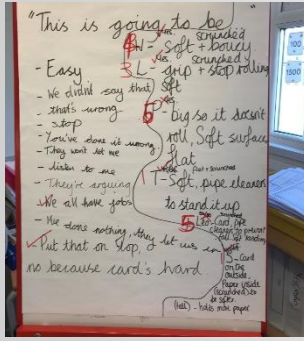 "This is going to be
- Easy
- We didn't say that
- that's wrong
- stop
- You've done it wrong
- They won't let me
- listen to me
- They're arguing
- We all have jobs
- Me done nothing, they let us in
Put that on top,
no because card's hard
scrunched
4 W - Soft + bouncy
scrunched
3 L - grip + stop rolling
Soft
6 P - Big so it doesn't
roll, Soft surface,
flat
flat + scrunched
1 T - Soft, pipe cleaner
to stand it up
5 Leo - Card, pipe
cleaner to prevent
fall off landing
S - Card
on the
outside.
Paper inside
(scrunched) to
be soft
(tall) - holds more paper
100
1500